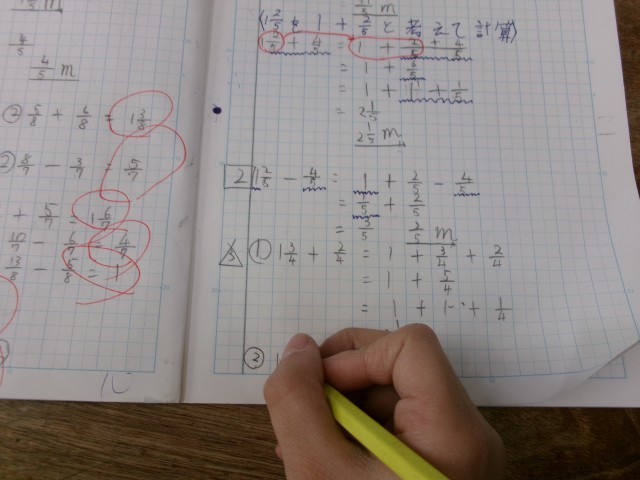 4/5
4/5 m
② 5/8 + 6/8 = 1 3/8
② 8/7 - 3/7 = 5/7
+ 5/7 = 1 6/7
10/7 - 6/7 = 4/7
13/8 - 5/8 = 1
m
(1 2/5 を 1 + 2/5 と考えて計算)
1 2/5 + 4/5 = 1 + 2/5 + 4/5
= 1 + 6/5
= 1 + 1 + 1/5
= 2 1/5
2 1/5 m
2 1 2/5 - 4/5 = 1 + 2/5 - 4/5
= 1/5 + 2/5
= 3/5 2/5 m
3 ① 1 3/4 + 2/4 = 1 + 3/4 + 2/4
= 1 + 5/4
= 1 + 1 + 1/4
② 1